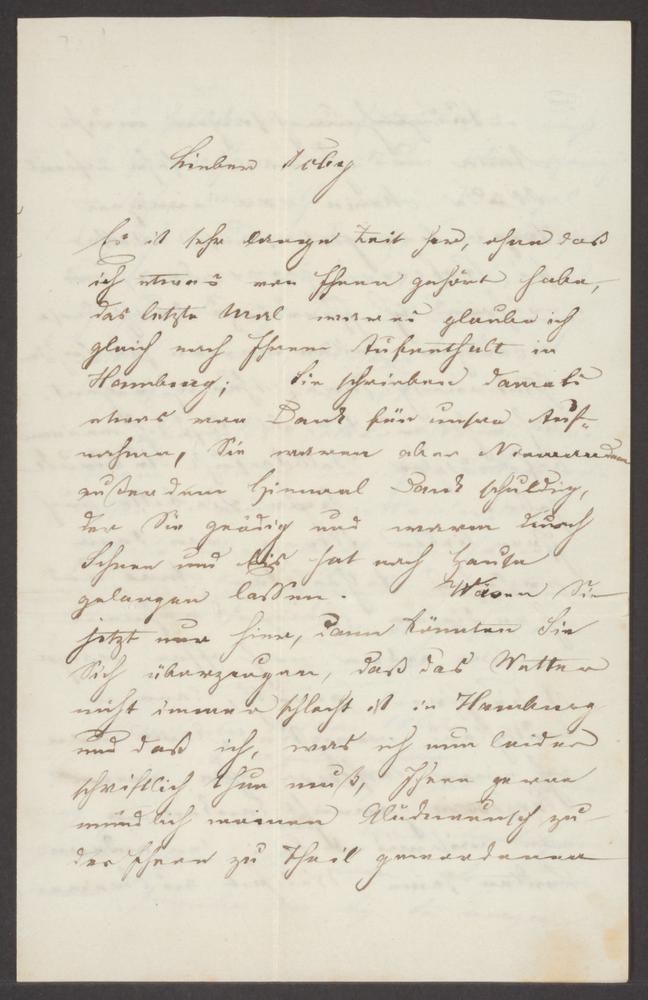 Lieber Toby
Es ist sehr lange Zeit her, ohne daß
ich etwas von Ihnen gehört habe,
das letzte Mal war es glaube ich
gleich nach Ihrem Aufenthalt in
Hamburg; Sie schrieben damals
etwas von Dank für unsre Auf-
nahme, Sie waren aber Niemandem
außer dem Himmel Dank schuldig,
der Sie gnädig und warm durch
Schnee und Eis hat nach Hause
gelangen lassen. Wären Sie
jetzt nur hier, dann könnten Sie
Sich überzeugen, daß das Wetter
nicht immer schlecht ist in Hamburg
und daß ich, was ich nun leider
schriftlich thun muß, Ihnen gerne
mündlich meinen Glückwunsch zu
der Ihnen zu Theil gewordenen